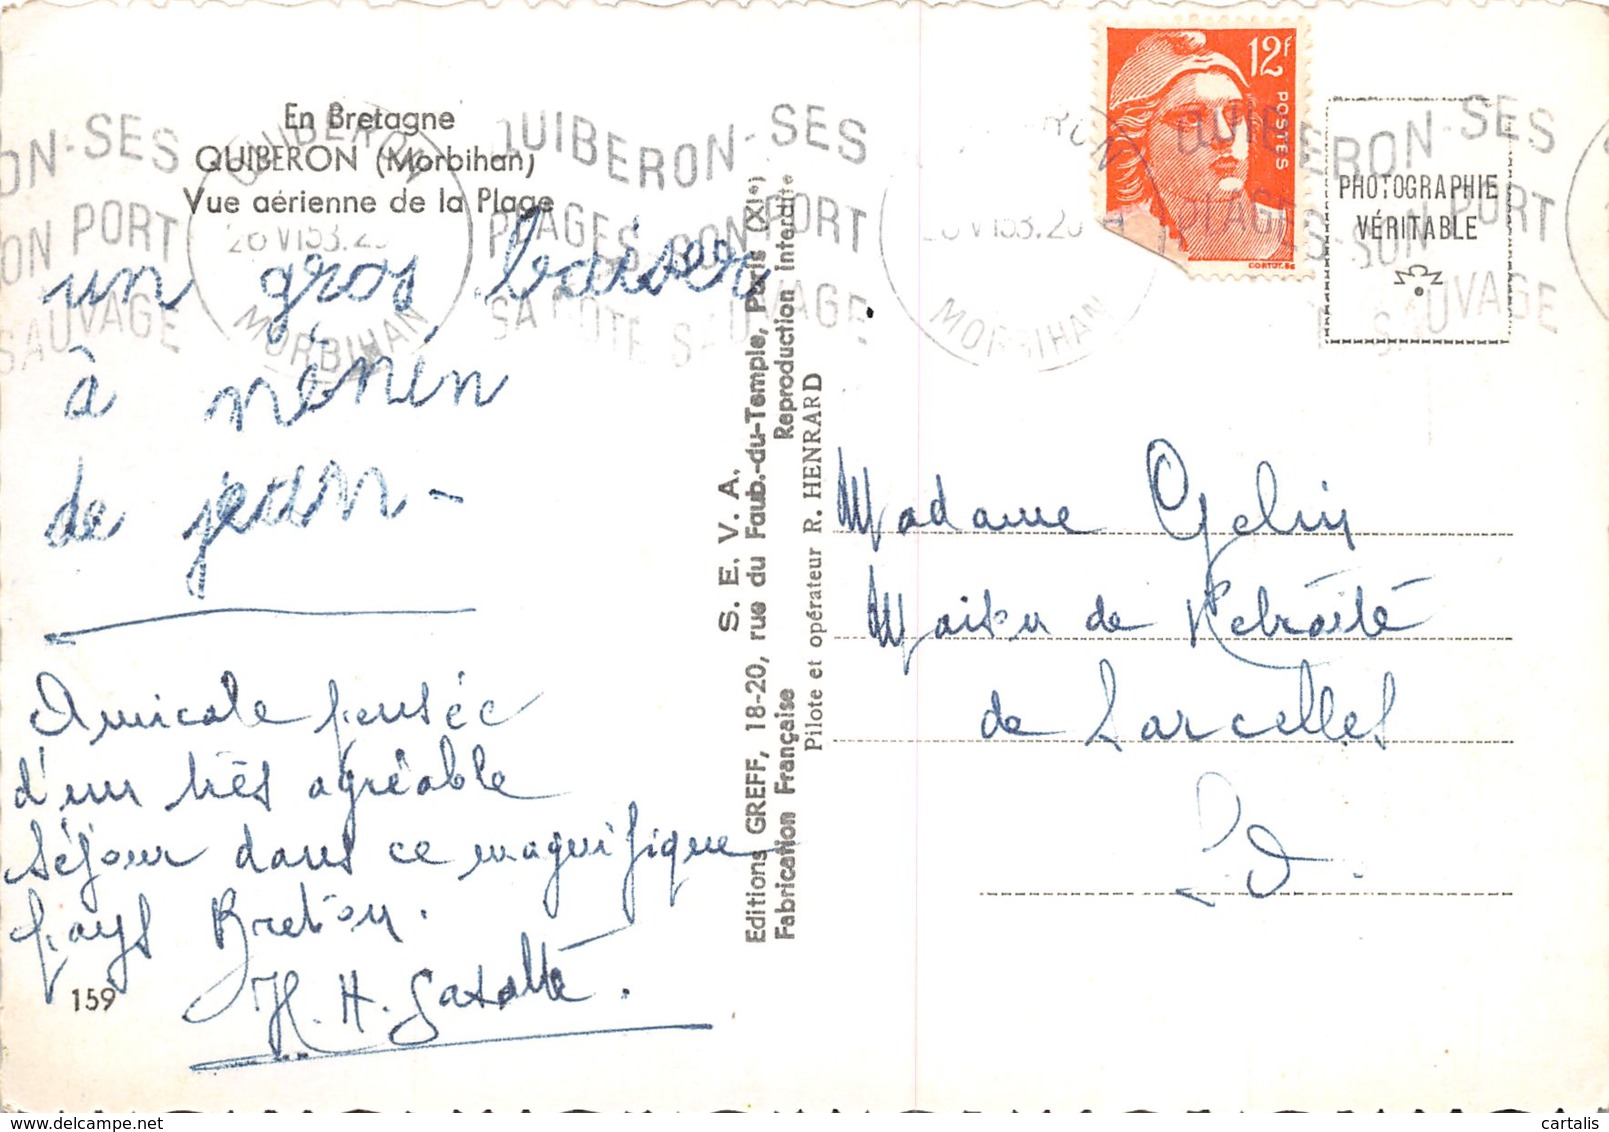 En Bretagne
QUIBERON (Morbihan)
Vue aérienne de la Plage
un gros baiser
à nénén
de jean -
Amicale pensée
d'un très agréable
séjour dans ce magnifique
pays Breton.
159
S. E. V. A.
Editions GREFF, 18-20, rue du Faub.-du-Temple, Paris (XIe)
Fabrication Française Reproduction interdite
Pilote et opérateur R. HENRARD
QUIBERON
MORBIHAN
QUIBERON-SES
PLAGES-SON PORT
SA COTE SAUVAGE
12F
POSTES
CORTOT.SC
MORBIHAN
QUIBERON-SES
PLAGES-SON PORT
SAUVAGE
ON-SES
ON PORT
SAUVAGE
PHOTOGRAPHIE
VÉRITABLE
Madame Gelin
Maison de Retraite
de Sarcelles
cartalis